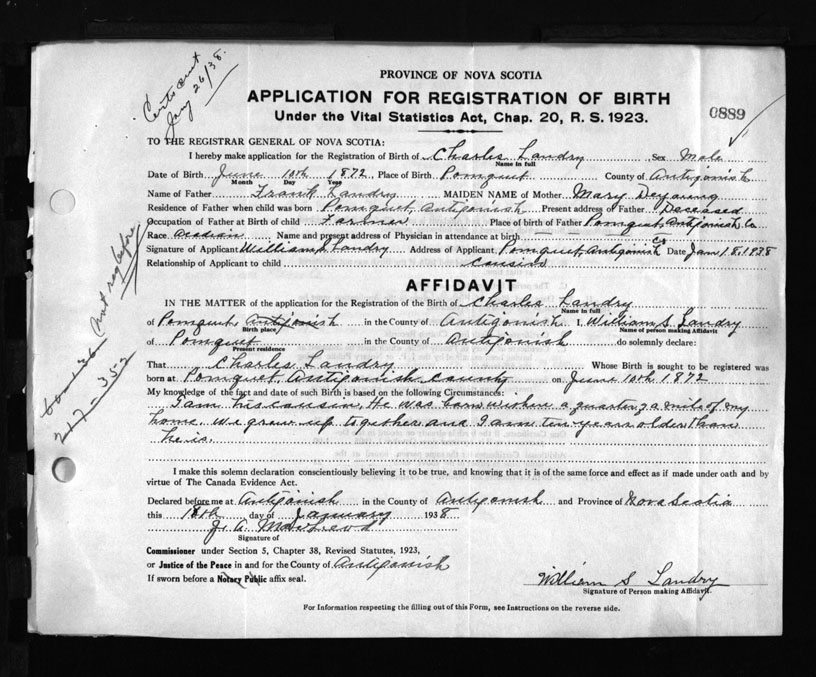 Certs sent
Jany 26/38.
PROVINCE OF NOVA SCOTIA
APPLICATION FOR REGISTRATION OF BIRTH
Under the Vital Statistics Act, Chap. 20, R. S. 1923.
0889
TO THE REGISTRAR GENERAL OF NOVA SCOTIA:
I hereby make application for the Registration of Birth of Charles Landry Sex Male
Name in full
Date of Birth June 10th 1872, Place of Birth Pomquet County of Antigonish
Month Day Year
Name of Father Frank Landry MAIDEN NAME of Mother Mary Deyoung
Residence of Father when child was born Pomquet, Antigonish Present address of Father Deceased
Occupation of Father at Birth of child Farmer Place of birth of Father Pomquet, Antigonish Co
Race Acadian Name and present address of Physician in attendance at birth
Signature of Applicant William S Landry Address of Applicant Pomquet, Antigonish Co Date Jan 18, 1938
Relationship of Applicant to child cousin
not reg before
AFFIDAVIT
IN THE MATTER of the application for the Registration of the Birth of Charles Landry
Name in full
of Pomquet, Antigonish in the County of Antigonish I, William S. Landry
Birth place Name of person making Affidavit
of Pomquet in the County of Antigonish do solemnly declare:
Present residence
That Charles Landry Whose Birth is sought to be registered was
born at Pomquet, Antigonish County on June 10th 1872
My knowledge of the fact and date of such Birth is based on the following Circumstances:
I am his cousin. He was born within a quarter of a mile of my
home. We grew up together and I am ten years older than
he is.
217-352
I make this solemn declaration conscientiously believing it to be true, and knowing that it is of the same force and effect as if made under oath and by
virtue of The Canada Evidence Act.
Declared before me at Antigonish in the County of Antigonish and Province of Nova Scotia
this 18th day of January 1938
J. A.
Signature of
Commissioner under Section 5, Chapter 38, Revised Statutes, 1923,
or Justice of the Peace in and for the County of Antigonish
If sworn before a Notary Public affix seal.
William S Landry
Signature of Person making Affidavit.
For Information respecting the filling out of this Form, see Instructions on the reverse side.